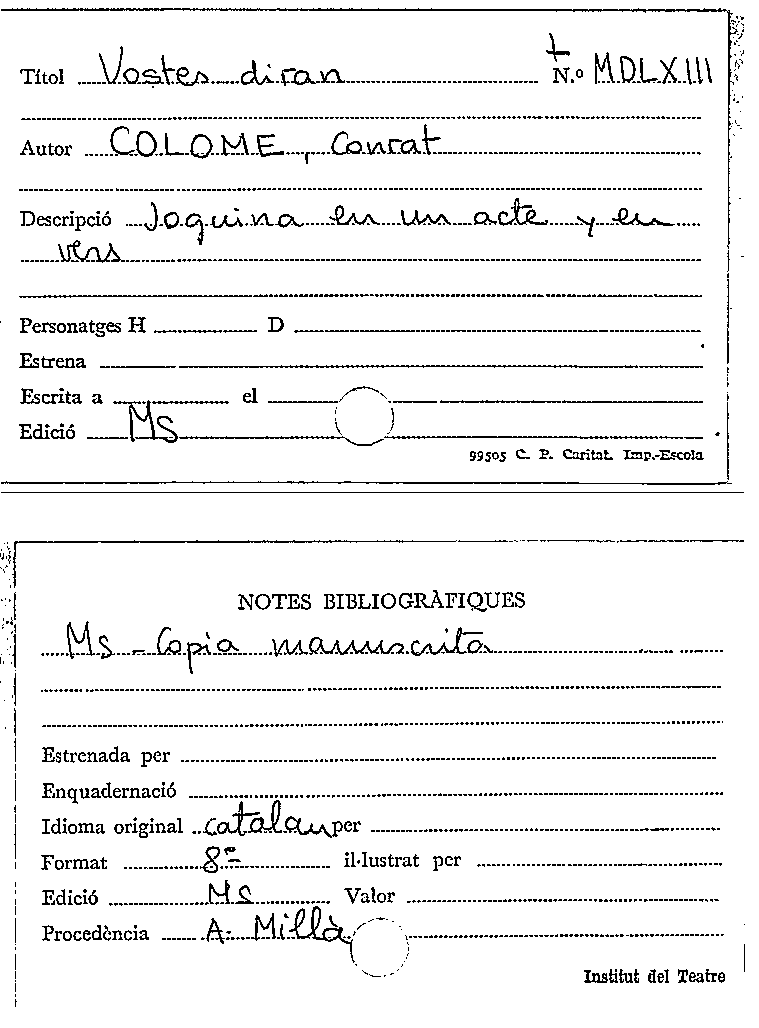 Títol Vostes diran N.º MDLXIII
Autor COLOME, Conrat
Descripció Joguina en un acte y en
vers
Personatges H D
Estrena
Escrita a el
Edició MS
99505 C. P. Caritat. Imp.-Escola
NOTES BIBLIOGRÀFIQUES
Ms - Copia manuscrita
Estrenada per
Enquadernació
Idioma original catalan per
Format 8º il·lustrat per
Edició MS Valor
Procedència A. Millà
Institut del Teatre